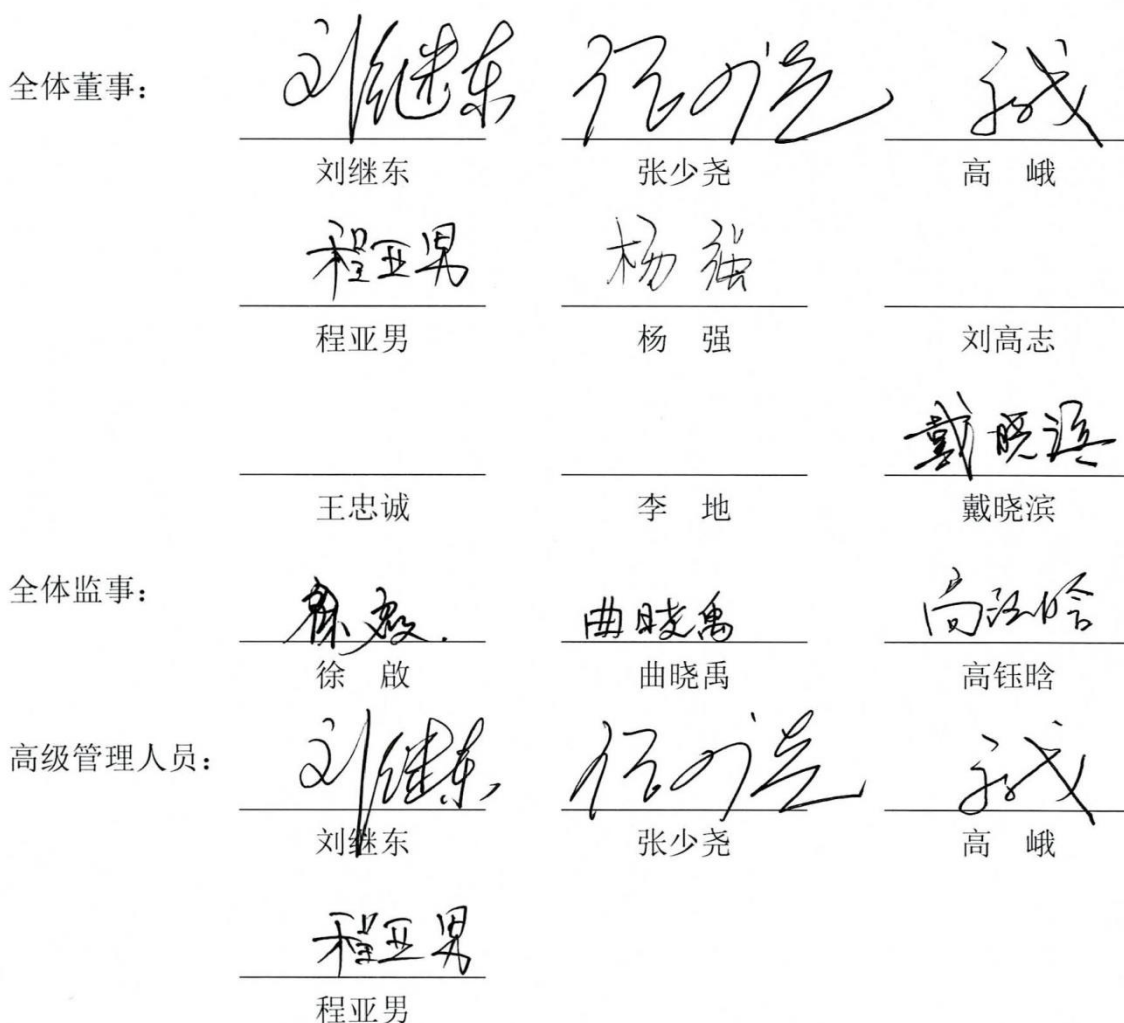 全体董事：
刘继东 张少尧 高 峨
刘继东 张少尧 高 峨
程亚男 杨 强
程亚男 杨 强 刘高志
戴晓滨
王忠诚 李 地 戴晓滨
全体监事：
徐啟 曲晓禹 高钰晗
徐 啟 曲晓禹 高钰晗
高级管理人员：
刘继东 张少尧 高 峨
刘继东 张少尧 高 峨
程亚男
程亚男